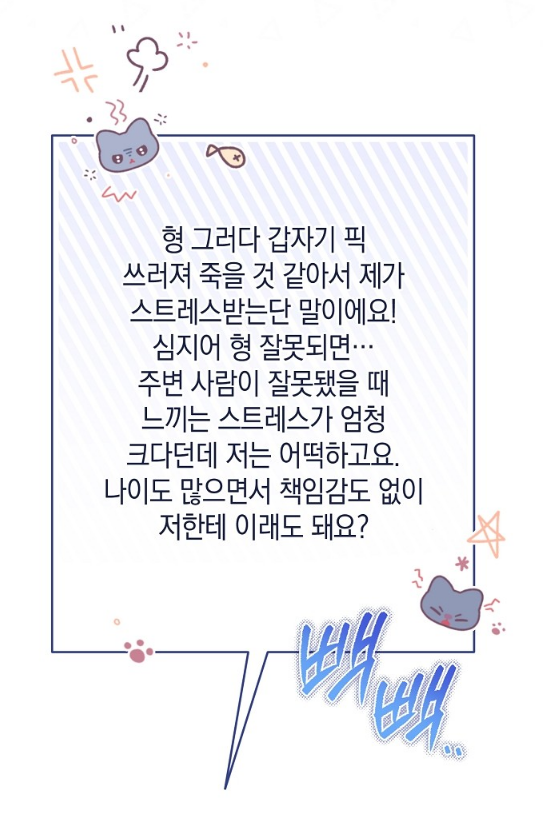 형 그러다 갑자기 픽
쓰러져 죽을 것 같아서 제가
스트레스받는단 말이에요!
심지어 형 잘못되면…
주변 사람이 잘못됐을 때
느끼는 스트레스가 엄청
크다던데 저는 어떡하고요.
나이도 많으면서 책임감도 없이
저한테 이래도 돼요?
빽
빽..